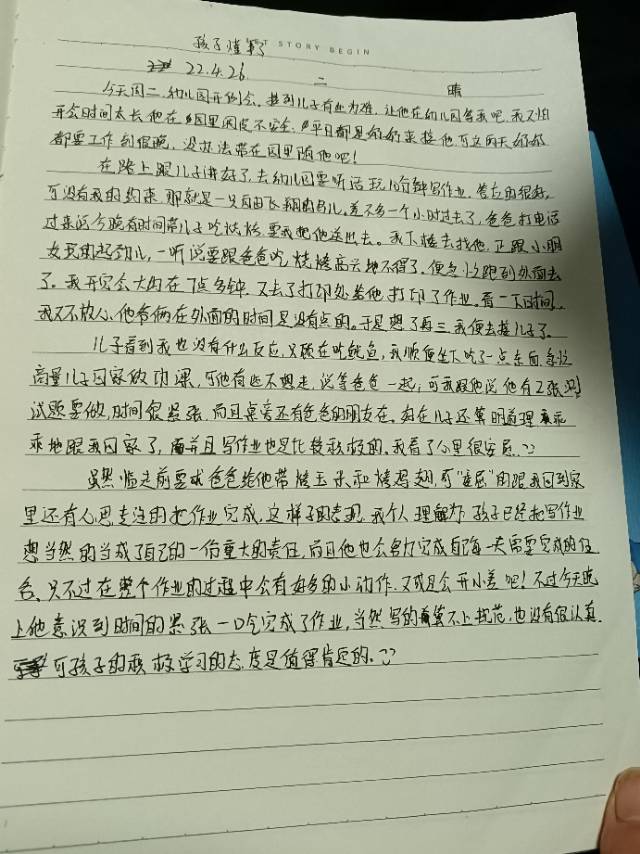 孩子懂事了 STORY BEGIN
22.4.26. 二 晴
今天周二,幼儿园开例会。接到儿子有些为难,让他在幼儿园等我吧,我又怕
开会时间太长他在园里闹皮不安全。平日都是奶奶来接他,可这两天奶奶
都要工作到很晚,没办法带在园里随他吧!
在路上跟儿子讲好了,去幼儿园要听话,玩10分钟写作业,答应的很好,
可没有我的约束,那就是一只自由飞翔的鸟儿。差不多一个小时过去了,爸爸打电话
过来说今晚有时间带儿子吃烧烤,要我把他送出去。我下楼去找他,正跟小朋
友玩的起劲儿,一听说要跟爸爸吃烧烤高兴地不得了,便急忙跑到外面去
了。我开完会大约在7点多钟,又去了打印处给他打印了作业。看一下时间,
我又不放心,他爷俩在外面的时间是没有点的。于是想了再三我便去接儿子了。
儿子看到我也没有什么反应,只顾在吃鱿鱼,我顺便坐下吃了一点东西,急说
商量儿子回家做功课,可他有些不想走,说等爸爸一起,可我跟他说他有2张
试题要做,时间很紧张,而且桌旁还有爸爸的朋友在。好在儿子还算明道理,乖
乖地跟我回家了,并且写作业也是比较积极的。我看了心里很安慰。
虽然临走前要求爸爸给他带烤玉米和烤鸡翅,可“委屈”的跟我回到家
里还有心思专注的把作业完成,这样子的表现,我个人理解为孩子已经把写作业
想当然的当成了自己的一份重大的责任,而且他也会努力完成自己每一天需要完成的任
务。只不过在整个作业的过程中会有好多的小动作,又或是会开小差吧!不过今天晚
上他意识到时间的紧张,一口气完成了作业,当然写的算不上规范,也没有很认真。
可孩子的积极学习的态度是值得肯定的。